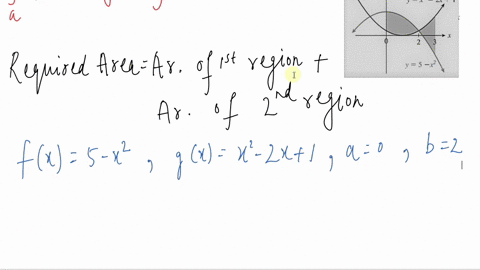 a
Required Area=Ar. of 1st region +
Ar. of 2nd region
f(x) = 5-x², g(x) = x²-2x+1, a=0, b=2
0 2 3 x
y = 5 - x²